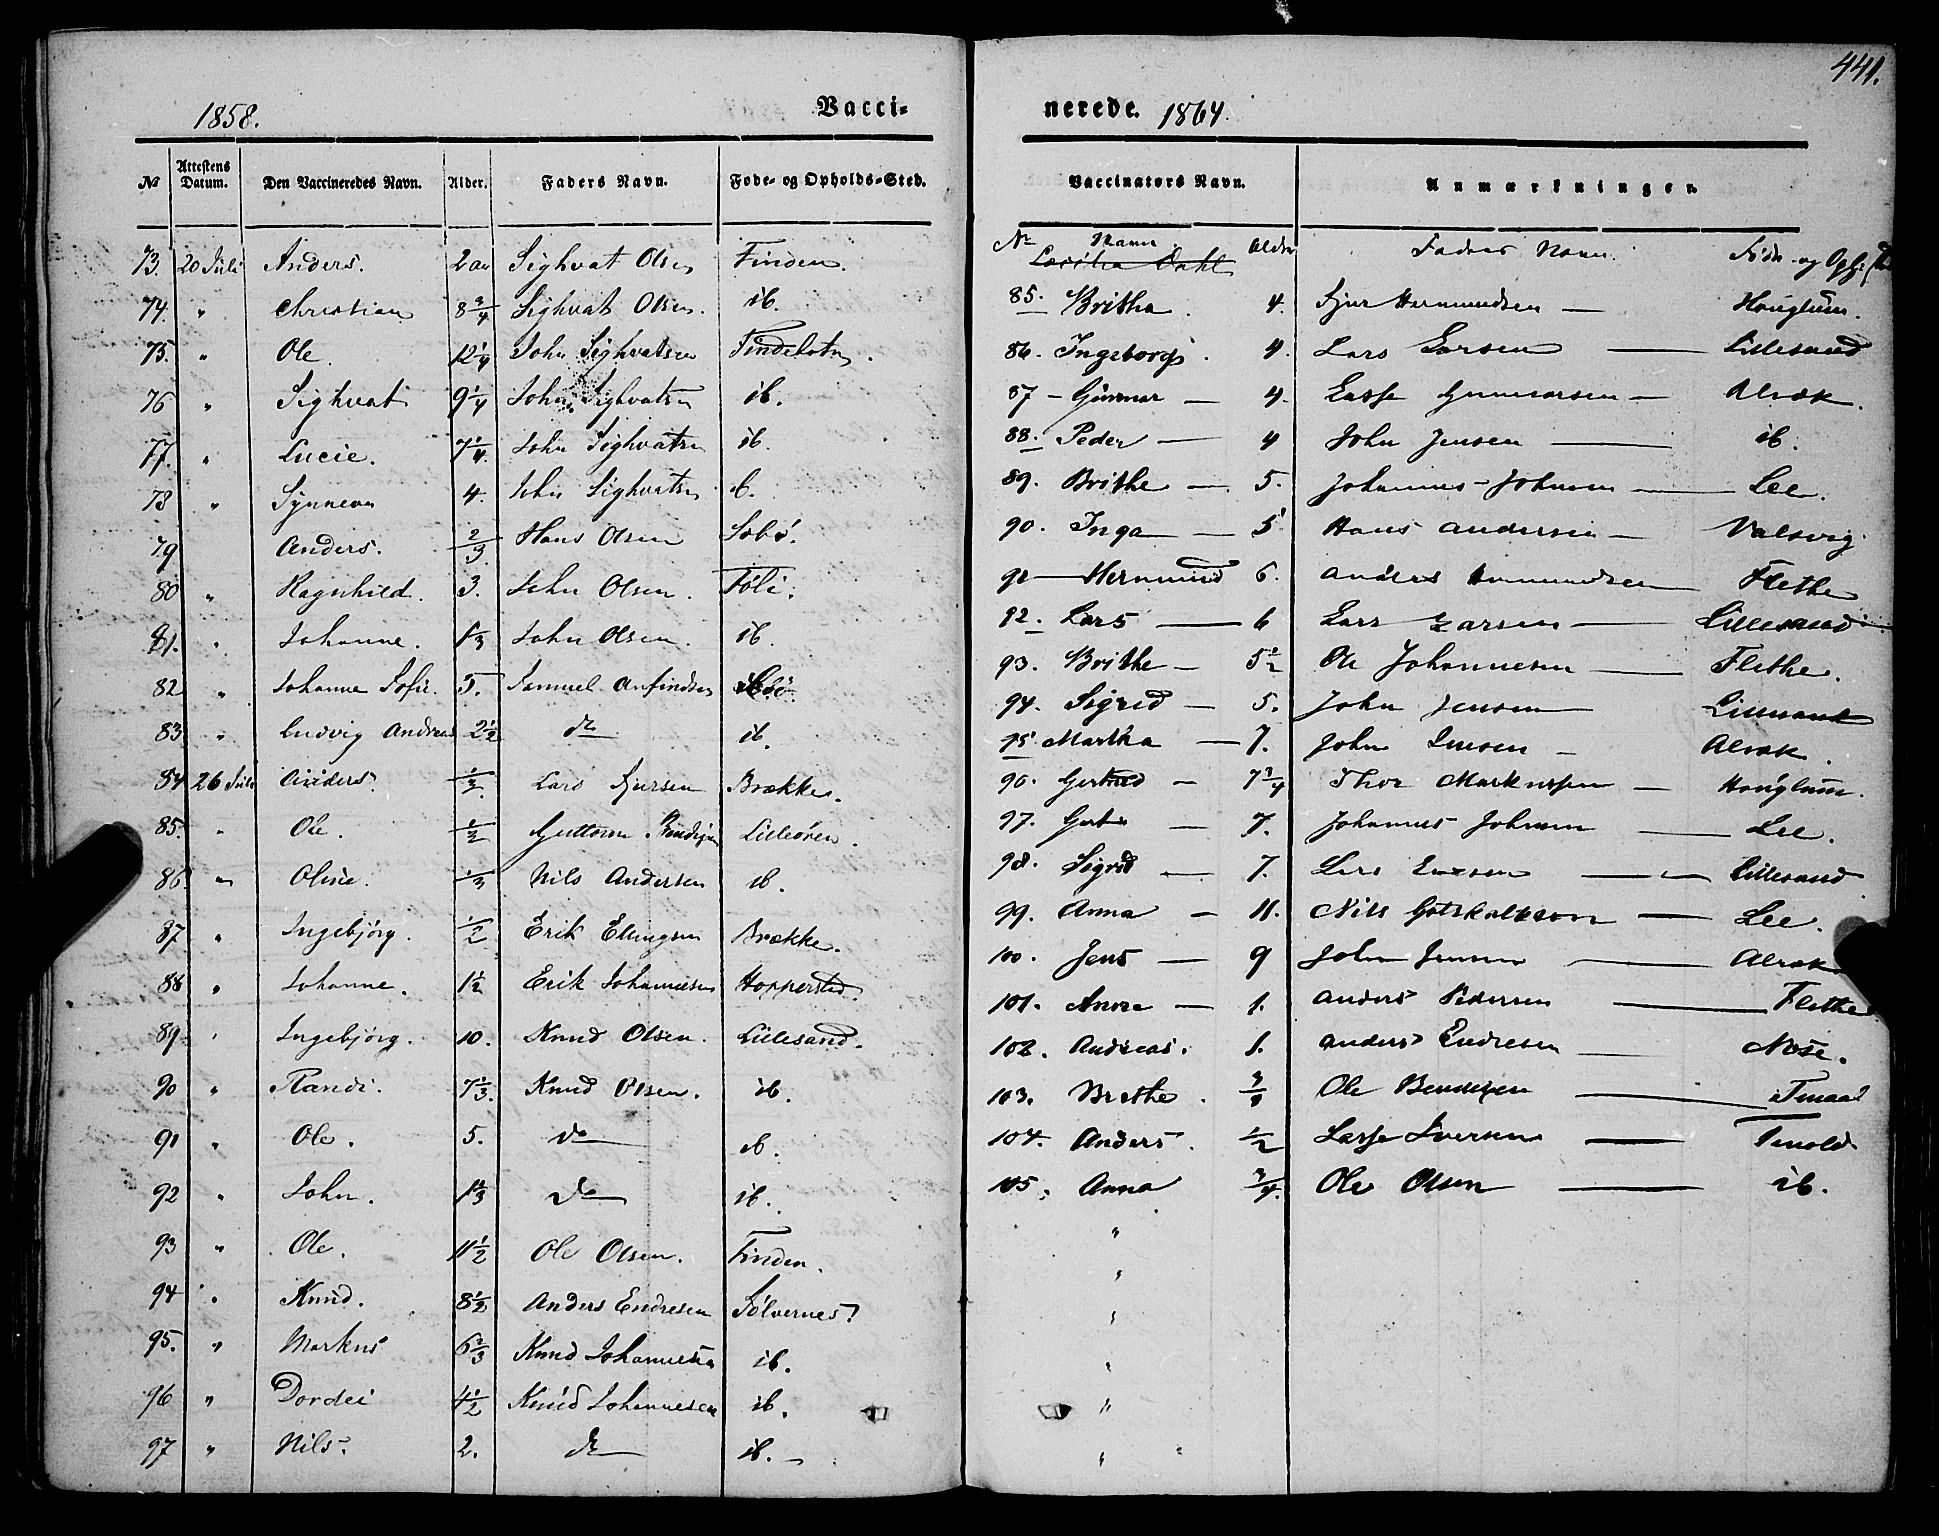 1858.
Vacci-
№ Attestens Datum. Den Vaccineredes Navn. Alder. Faders Navn. Føde- og Opholds-Sted.
73. 20 Juli Anders. 2 aar Sighvat Olsen Finden.
74. " Christian 8 3/4 Sighvat Olsen. ib.
75. " Ole 12 1/4 John Sighvatsen Findebotn.
76 " Sighvat 9 1/4 John Sighvatsn ib.
77. " Lucie. 7 1/4. John Sighvatsn ib.
78 " Synneva 4. John Sighvatsn ib.
79 Anders. 2/3 Hans Olsen Sæbø.
80 " Ragnhild. 3. John Olsen. Føli.
81. " Johanne. 1/3 John Olsen. ib.
82 " Johanne Sofie. 5. Samuel Anfindsen
83 " Ludvig Andreas 2 1/2 do ib.
84 26 Juli Anders. 1/3. Lars Sjursen Brække.
85. " Ole. 1/2 Guttorm Lilleøren.
86. " Oline. 1/3 Nils Andersen ib.
87 " Ingebjørg. 1/2 Erik Ellingsen Brække.
88 " Johanne. 1 1/2 Erik Johannesen Hopperstad.
89 " Ingebjørg. 10. Knud Olsen. Lillesand.
90 " Randi. 7 1/3. Knud Olsen. ib.
91 " Ole. 5. do ib.
92 " John. 1 2/3 do ib.
93 " Ole. 11 1/2 Ole Olsen. Finden.
94 " Knud. 8 1/2 Anders Endresen Sølvernes.
95. " Markus 6 2/3 Knud Johannesen ib.
96 " Dordei 4 1/2 Knud Johannesen ib.
97 " Nils. 2. do ib.
441.
nerede. 1864.
Vaccinators Navn. Anmærkninger.
No Navn Alder Faders Navn. Føde- og Oph. Sted
Dahl
85. Britha 4. Sjur Hermundsen Houglum.
86. Ingeborg. 4. Lars Larsen Lillesand
87 - Gunnar 4. Lasse Gunnarsen Alræk.
88. Peder 4 John Jensen ib.
89. Brithe 5. Johannes Johnsen Lee.
90. Inga 5 Hans Andersen Valsvig.
91 Hermund 6. Anders Hermundsen Flethe
92. Lars 6 Lars Larsen Lillesand
93. Brithe 5 1/2 Ole Johannesen Flethe.
94. Sigrid 5. John Jensen Lillesand
95 Martha 7. John Jensen Alræk.
96. Gertrud 7 3/4 Thor Markussen Houglum.
97. 7. Johannes Johnsen Lee.
98. Sigrid 7. Lars Larsen Lillesand
99. Anna 11. Nils Gotskalksen Lee.
100. Jens 9 John Jensen Alræk
101. Anna 1. Anders Pedersen Flethe
102. Andreas. 1. Anders Endresen Nese.
103. Brithe. Ole Bendixen
104. Anders. 1/2 Lasse Iversen Tenold
105. Anna 3/4. Ole Olsen ib.
"
"
"
"
"
"